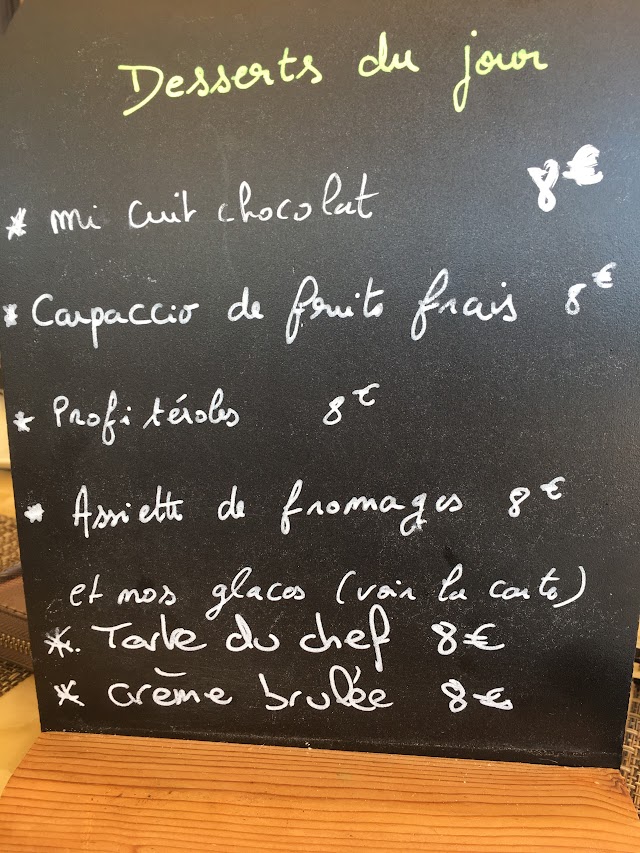 Desserts du jour
* mi cuit chocolat 8€
* Carpaccio de fruits frais 8€
* Profitéroles 8€
* Assiette de fromages 8€
et nos glaces (voir la carte)
*. Tarte du chef 8€
* crème brulée 8€